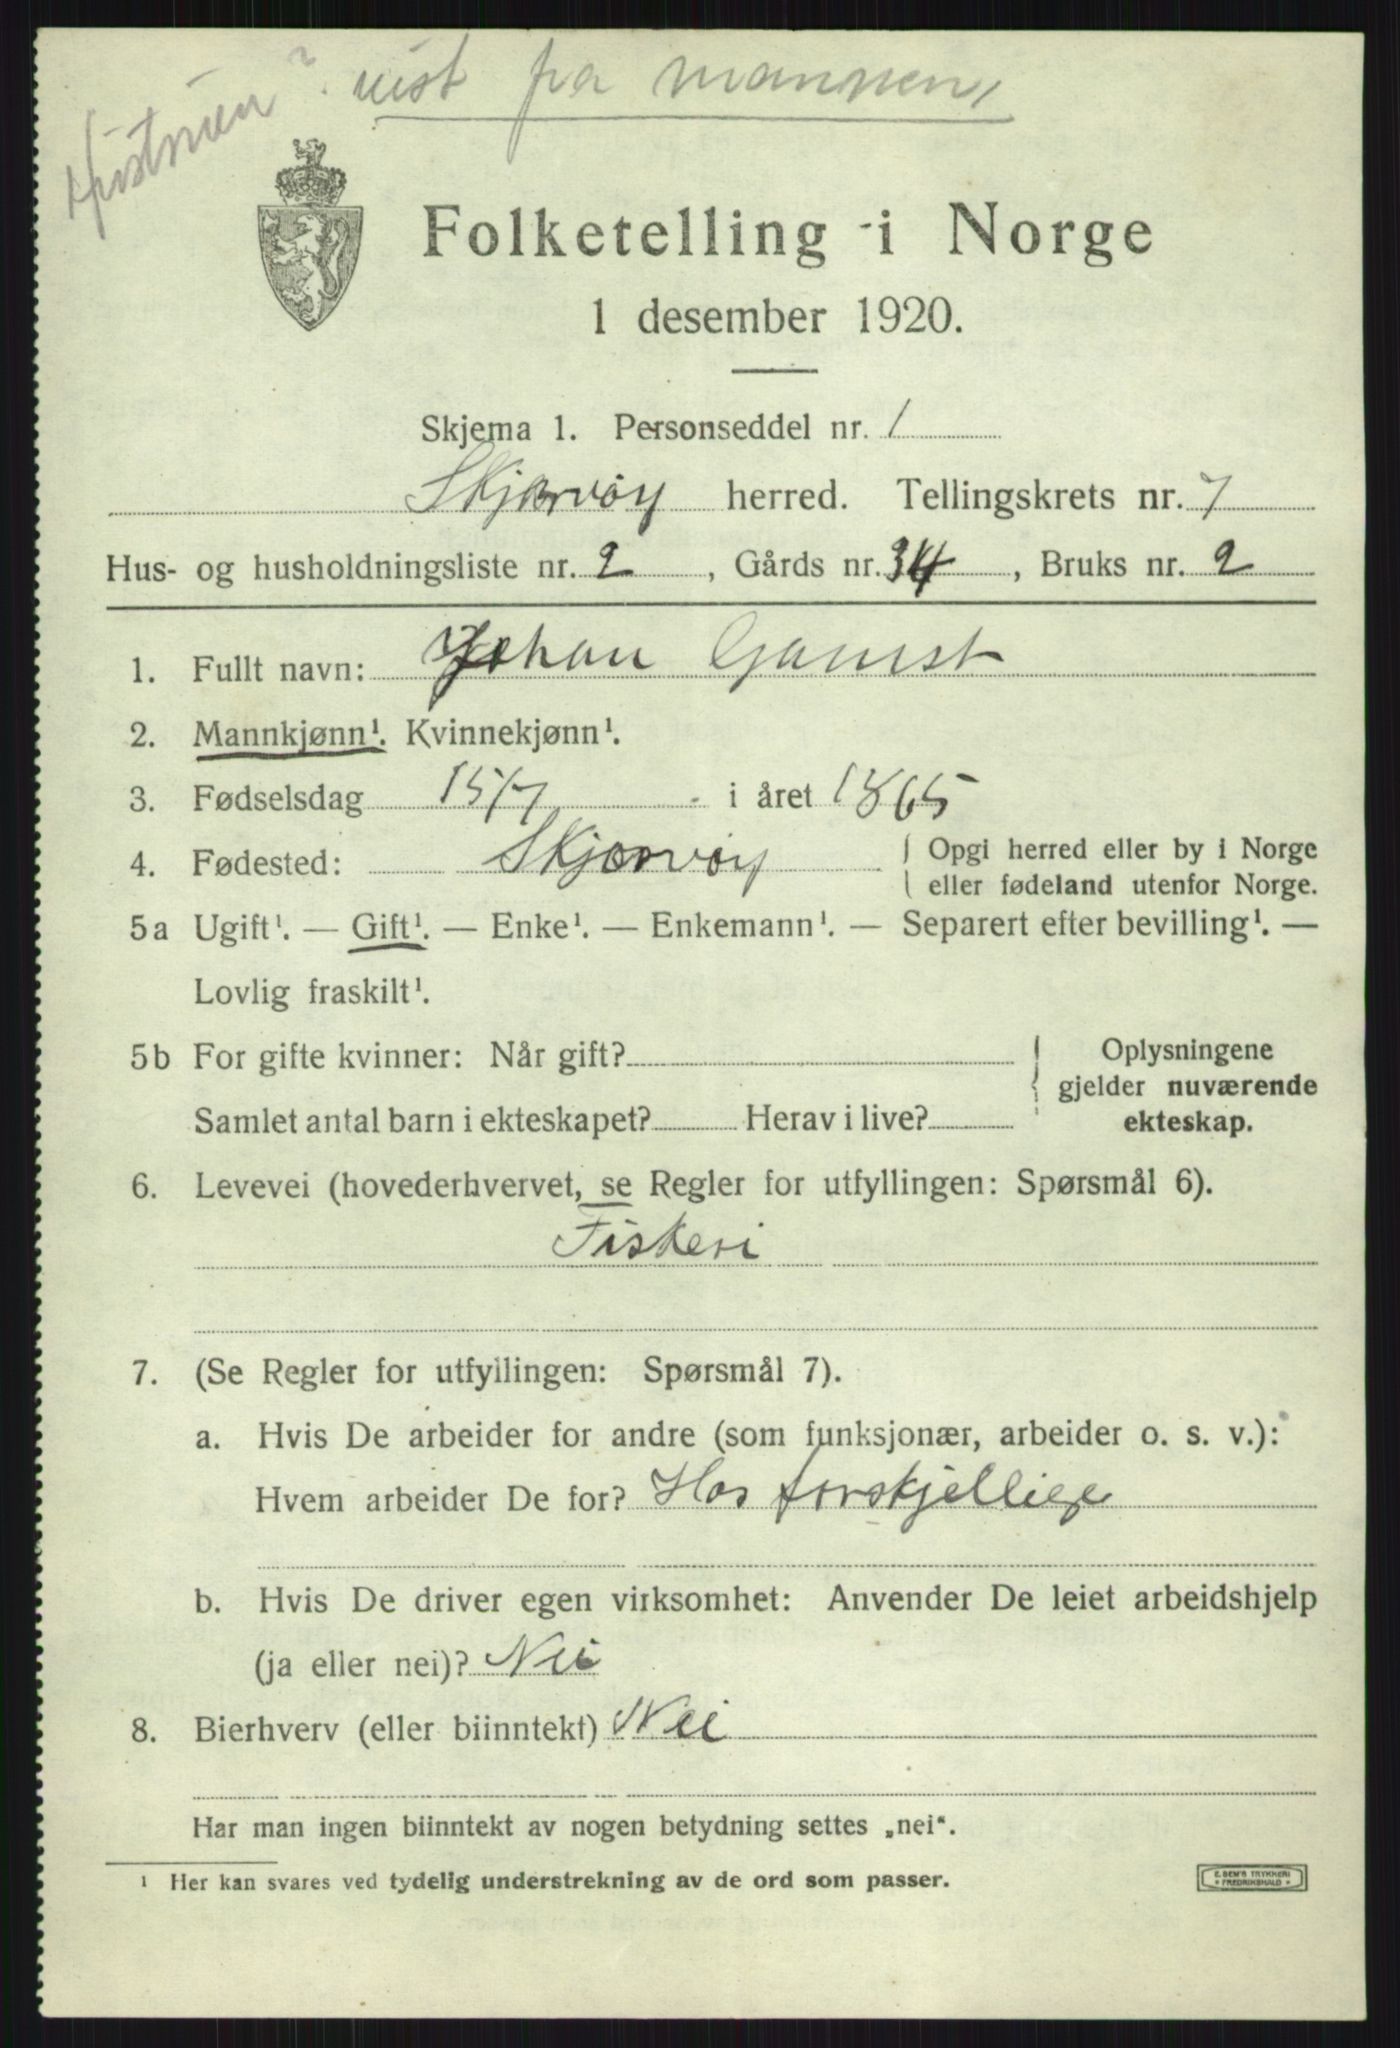 Hustruen? reist fra mannen,
Folketelling i Norge
1 desember 1920.
Skjema 1. Personseddel nr. 1
Skjærvöy herred. Tellingskrets nr. 7
Hus- og husholdningsliste nr. 2, Gårds nr. 34, Bruks nr. 2
1. Fullt navn: Johan Gamst
2. Mannkjønn¹. Kvinnekjønn¹.
3. Fødselsdag 15/7 i året 1865
4. Fødested: Skjærvöy { Opgi herred eller by i Norge
eller fødeland utenfor Norge.
5a Ugift¹. — Gift¹. — Enke¹. — Enkemann¹. — Separert efter bevilling¹. —
Lovlig fraskilt¹.
5b For gifte kvinner: Når gift?
Samlet antal barn i ekteskapet? Herav i live?
Oplysningene
gjelder nuværende
ekteskap.
6. Levevei (hovederhvervet, se Regler for utfyllingen: Spørsmål 6).
Fiskeri
7. (Se Regler for utfyllingen: Spørsmål 7).
a. Hvis De arbeider for andre (som funksjonær, arbeider o. s. v.):
Hvem arbeider De for? Hos forskjellige
b. Hvis De driver egen virksomhet: Anvender De leiet arbeidshjelp
(ja eller nei)? Nei
8. Bierhverv (eller biinntekt) Nei
Har man ingen biinntekt av nogen betydning settes „nei“.
¹ Her kan svares ved tydelig understrekning av de ord som passer.
E. SEM'S TRYKKERI
* FREDRIKSHALD *